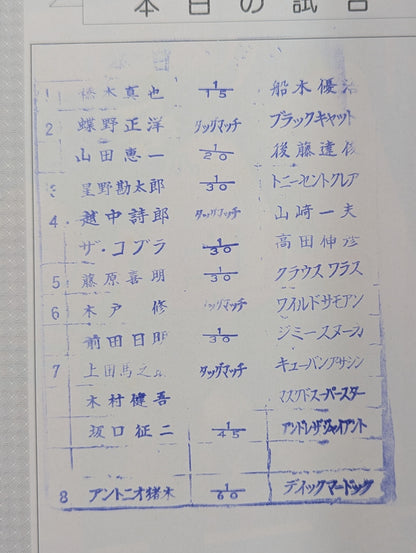 本日の試合
1 橋本真也 1/15 船木優治
2 蝶野正洋 タッグマッチ ブラックキャット
山田恵一 1/20 後藤達俊
3 星野勘太郎 1/30 トニーセントクレア
4. 越中詩郎 タッグマッチ 山崎一夫
ザ・コブラ 1/30 高田伸彦
5 藤原喜明 1/30 クラウスワラス
6 木戸 修 タッグマッチ ワイルドサモアン
前田日明 1/30 ジミースヌーカ
7 上田馬之助 タッグマッチ キューバンアサシン
木村健吾 マスクドスーパースター
坂口征二 1/45 アンドレザジャイアント
8 アントニオ猪木 1/60 ディックマードック